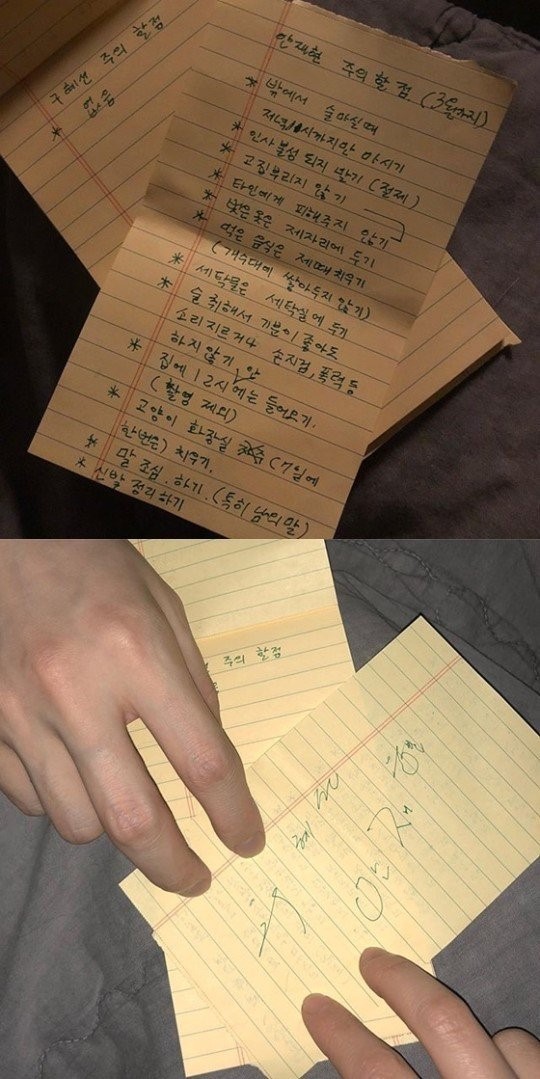 구혜선 주의 할 점
* 없음
안재현 주의 할 점 (3월까지)
* 밖에서 술마실때
저녁 시까지만 마시기
* 인사불성 되지 말기 (절제)
* 고집부리지 않기
* 타인에게 피해주지 않기
* 벗은옷은 제자리에 두기
* 먹은 음식은 제때 치우기
(개수대에 쌓아두지 않기)
* 세탁물은 세탁실에 두기
* 술 취해서 기분이 좋아도
소리지르거나 손지검, 폭력 등
하지않기
* 집에 12시 안에는 들어오기.
(촬영 제외)
* 고양이 화장실 (7일에
한번은) 치우기.
* 말 조심 . 하기. (특히 남의 말)
* 신발 정리하기
주의 할점
구혜선
안재현